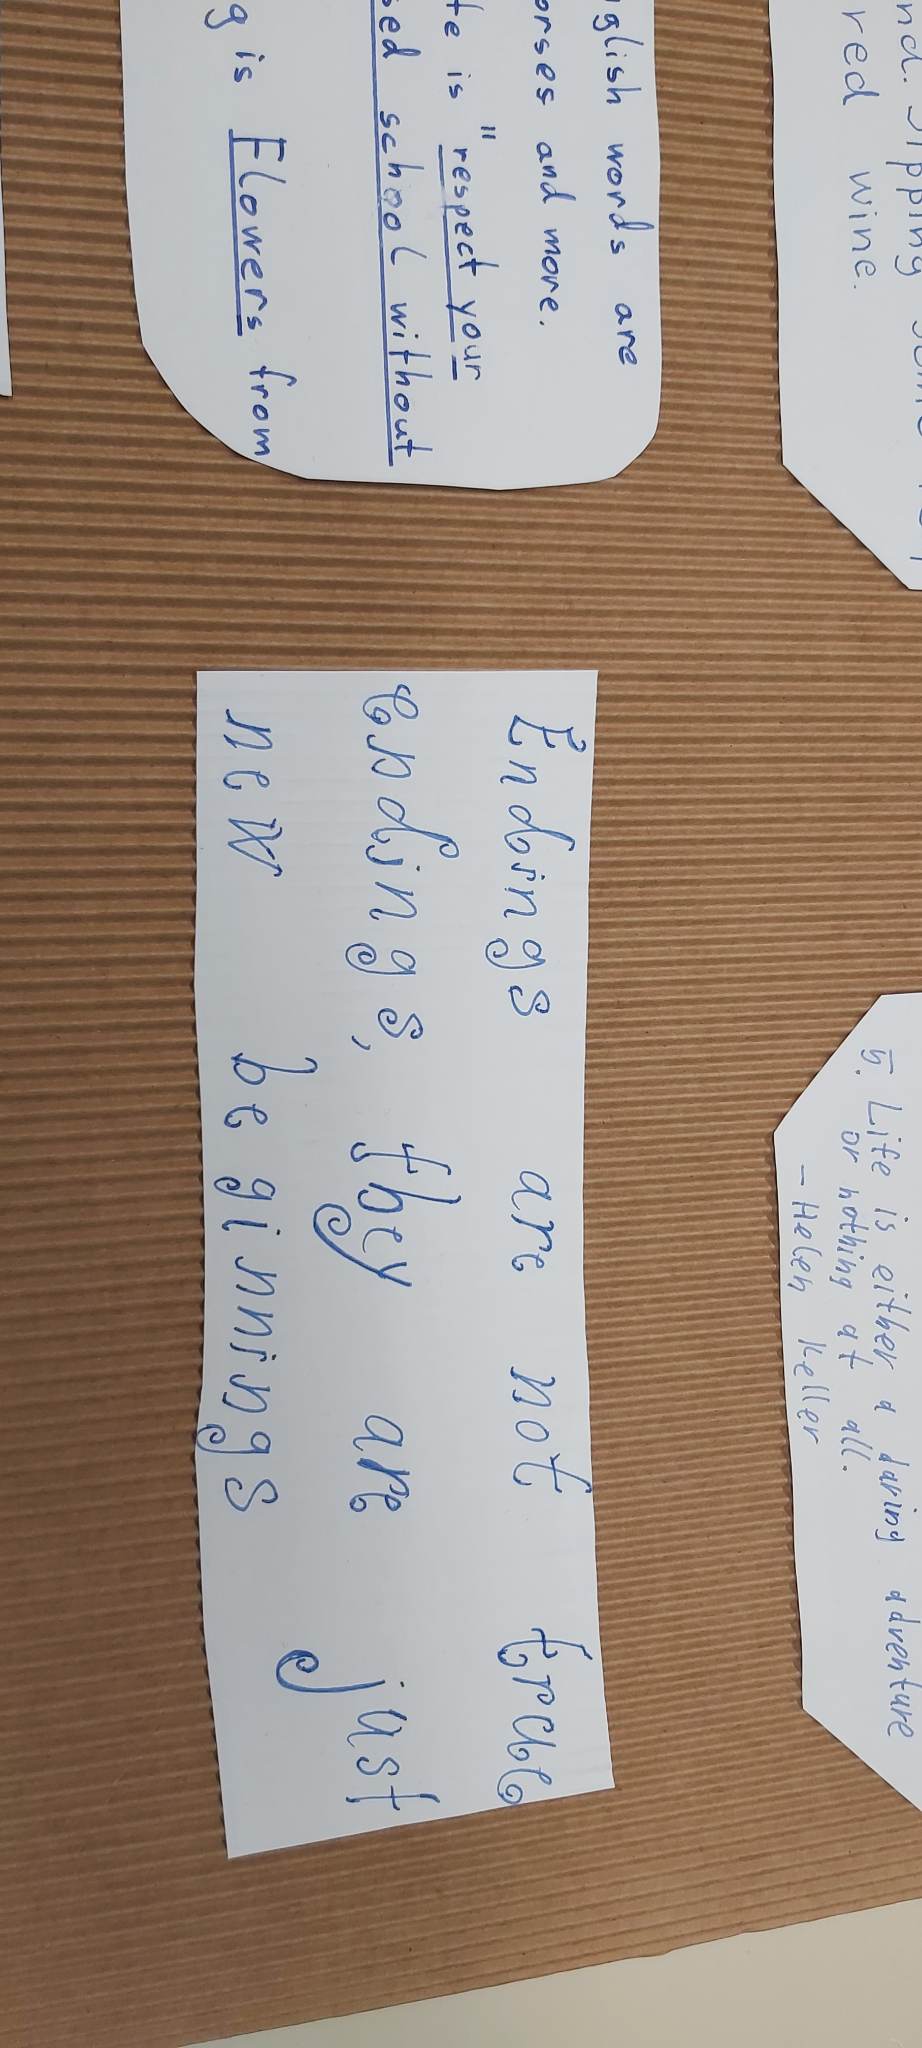 nd. Sipping some
red wine.
5. Life is either a daring adventure
or nothing at all.
– Helen Keller
glish words are
orses and more.
te is "respect your
sed school without
g is Flowers from
Endings are not true
endings, they are just
new beginnings